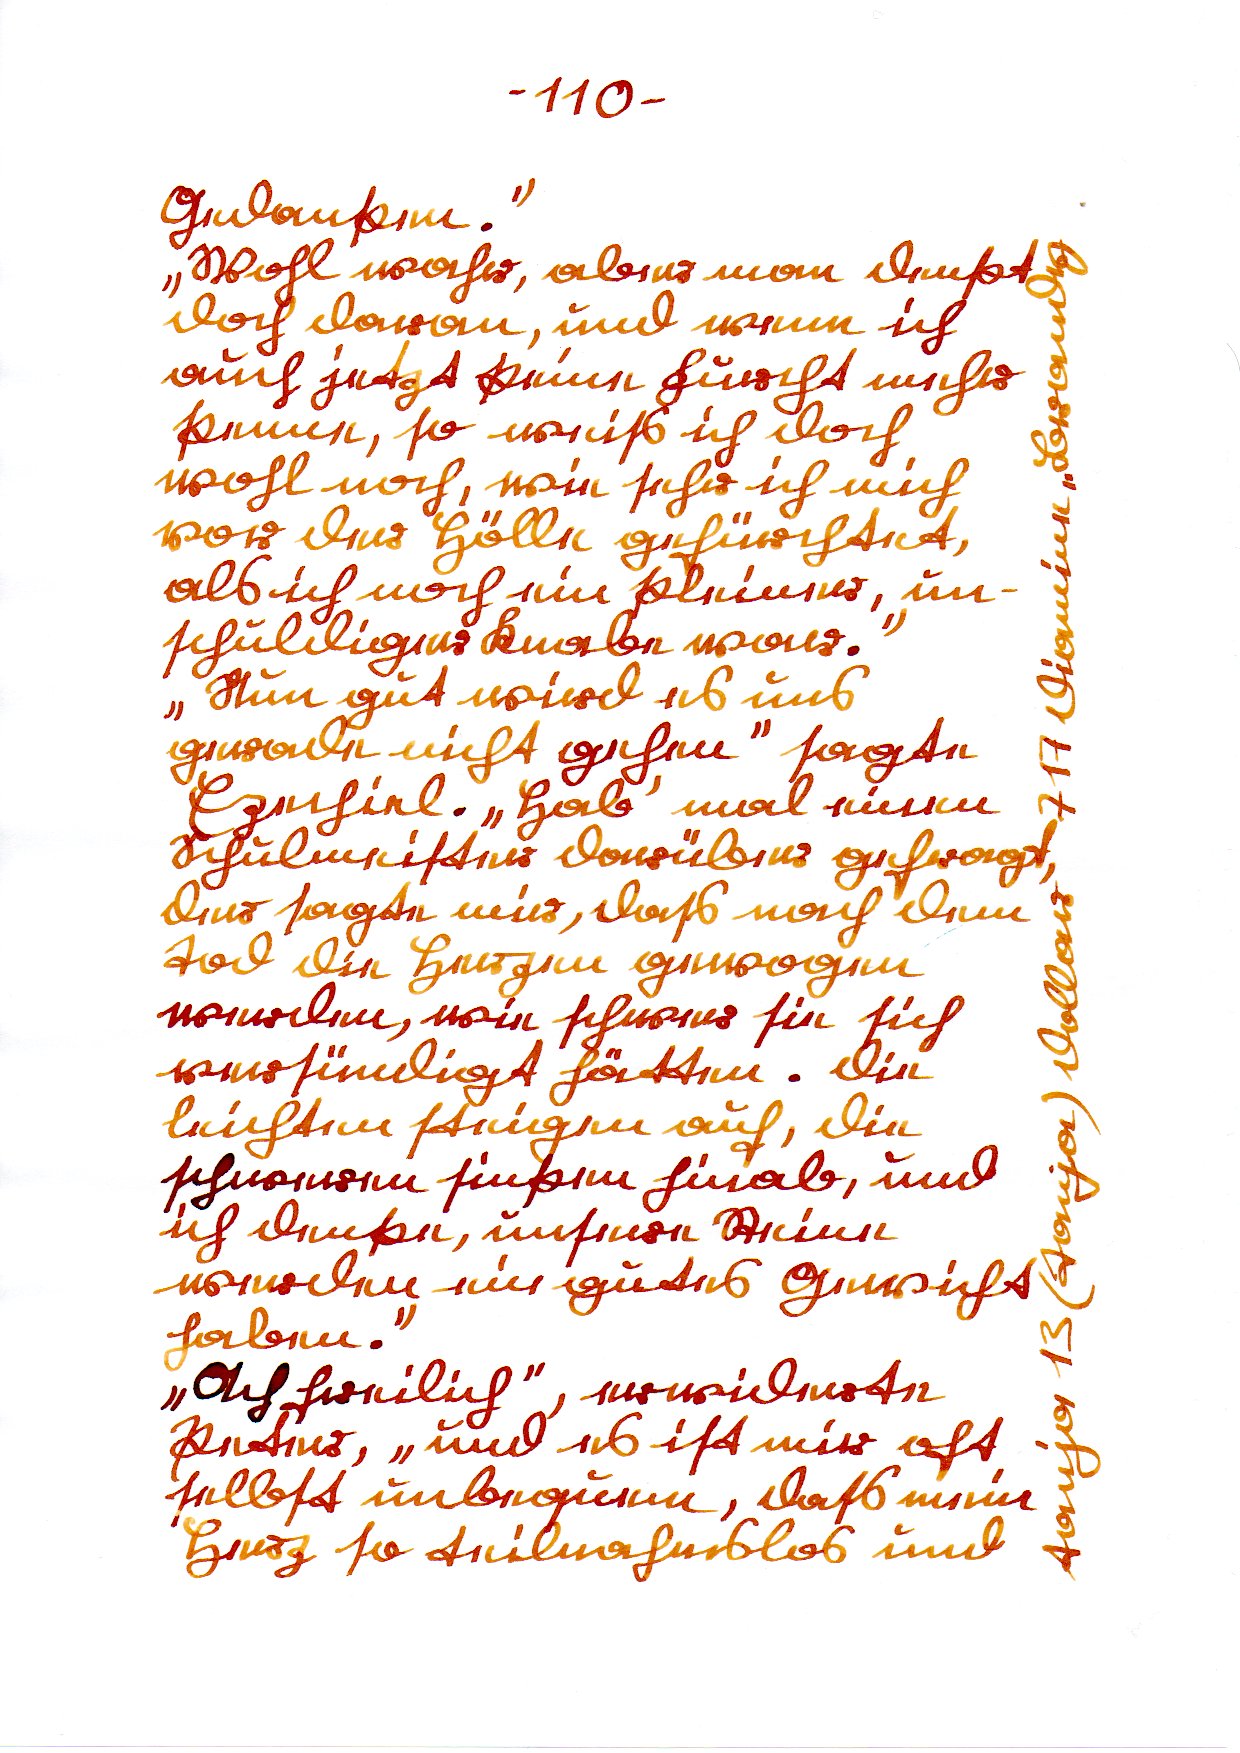 -110-
Gedanken."
„Wohl wahr, aber man denkt
doch daran, und wenn ich
auch jetzt keine Furcht mehr
kenne, so weiß ich doch
wohl noch, wie sehr ich mich
vor der Hölle gefürchtet,
als ich noch ein kleiner, un-
schuldiger Knabe war."
„Nun gut wird es uns
gerade nicht gehen" sagte
Ezechiel. „Hab' mal einen
Schulmeister darüber gefragt,
der sagte mir, daß nach dem
Tod die Herzen gewogen
werden, wie schwer sie sich
versündigt hätten. Die
leichten steigen auf, die
schweren sinken hinab, und
ich denke, unsere Steine
werden ein gutes Gewicht
haben."
„Ach freilich", erwiderte
Peter, „und es ist mir oft
selbst unbequem, daß mein
Herz so teilnahmslos und
Tanja 13 (Tanja) Dollar 717 Diamine „Brandy